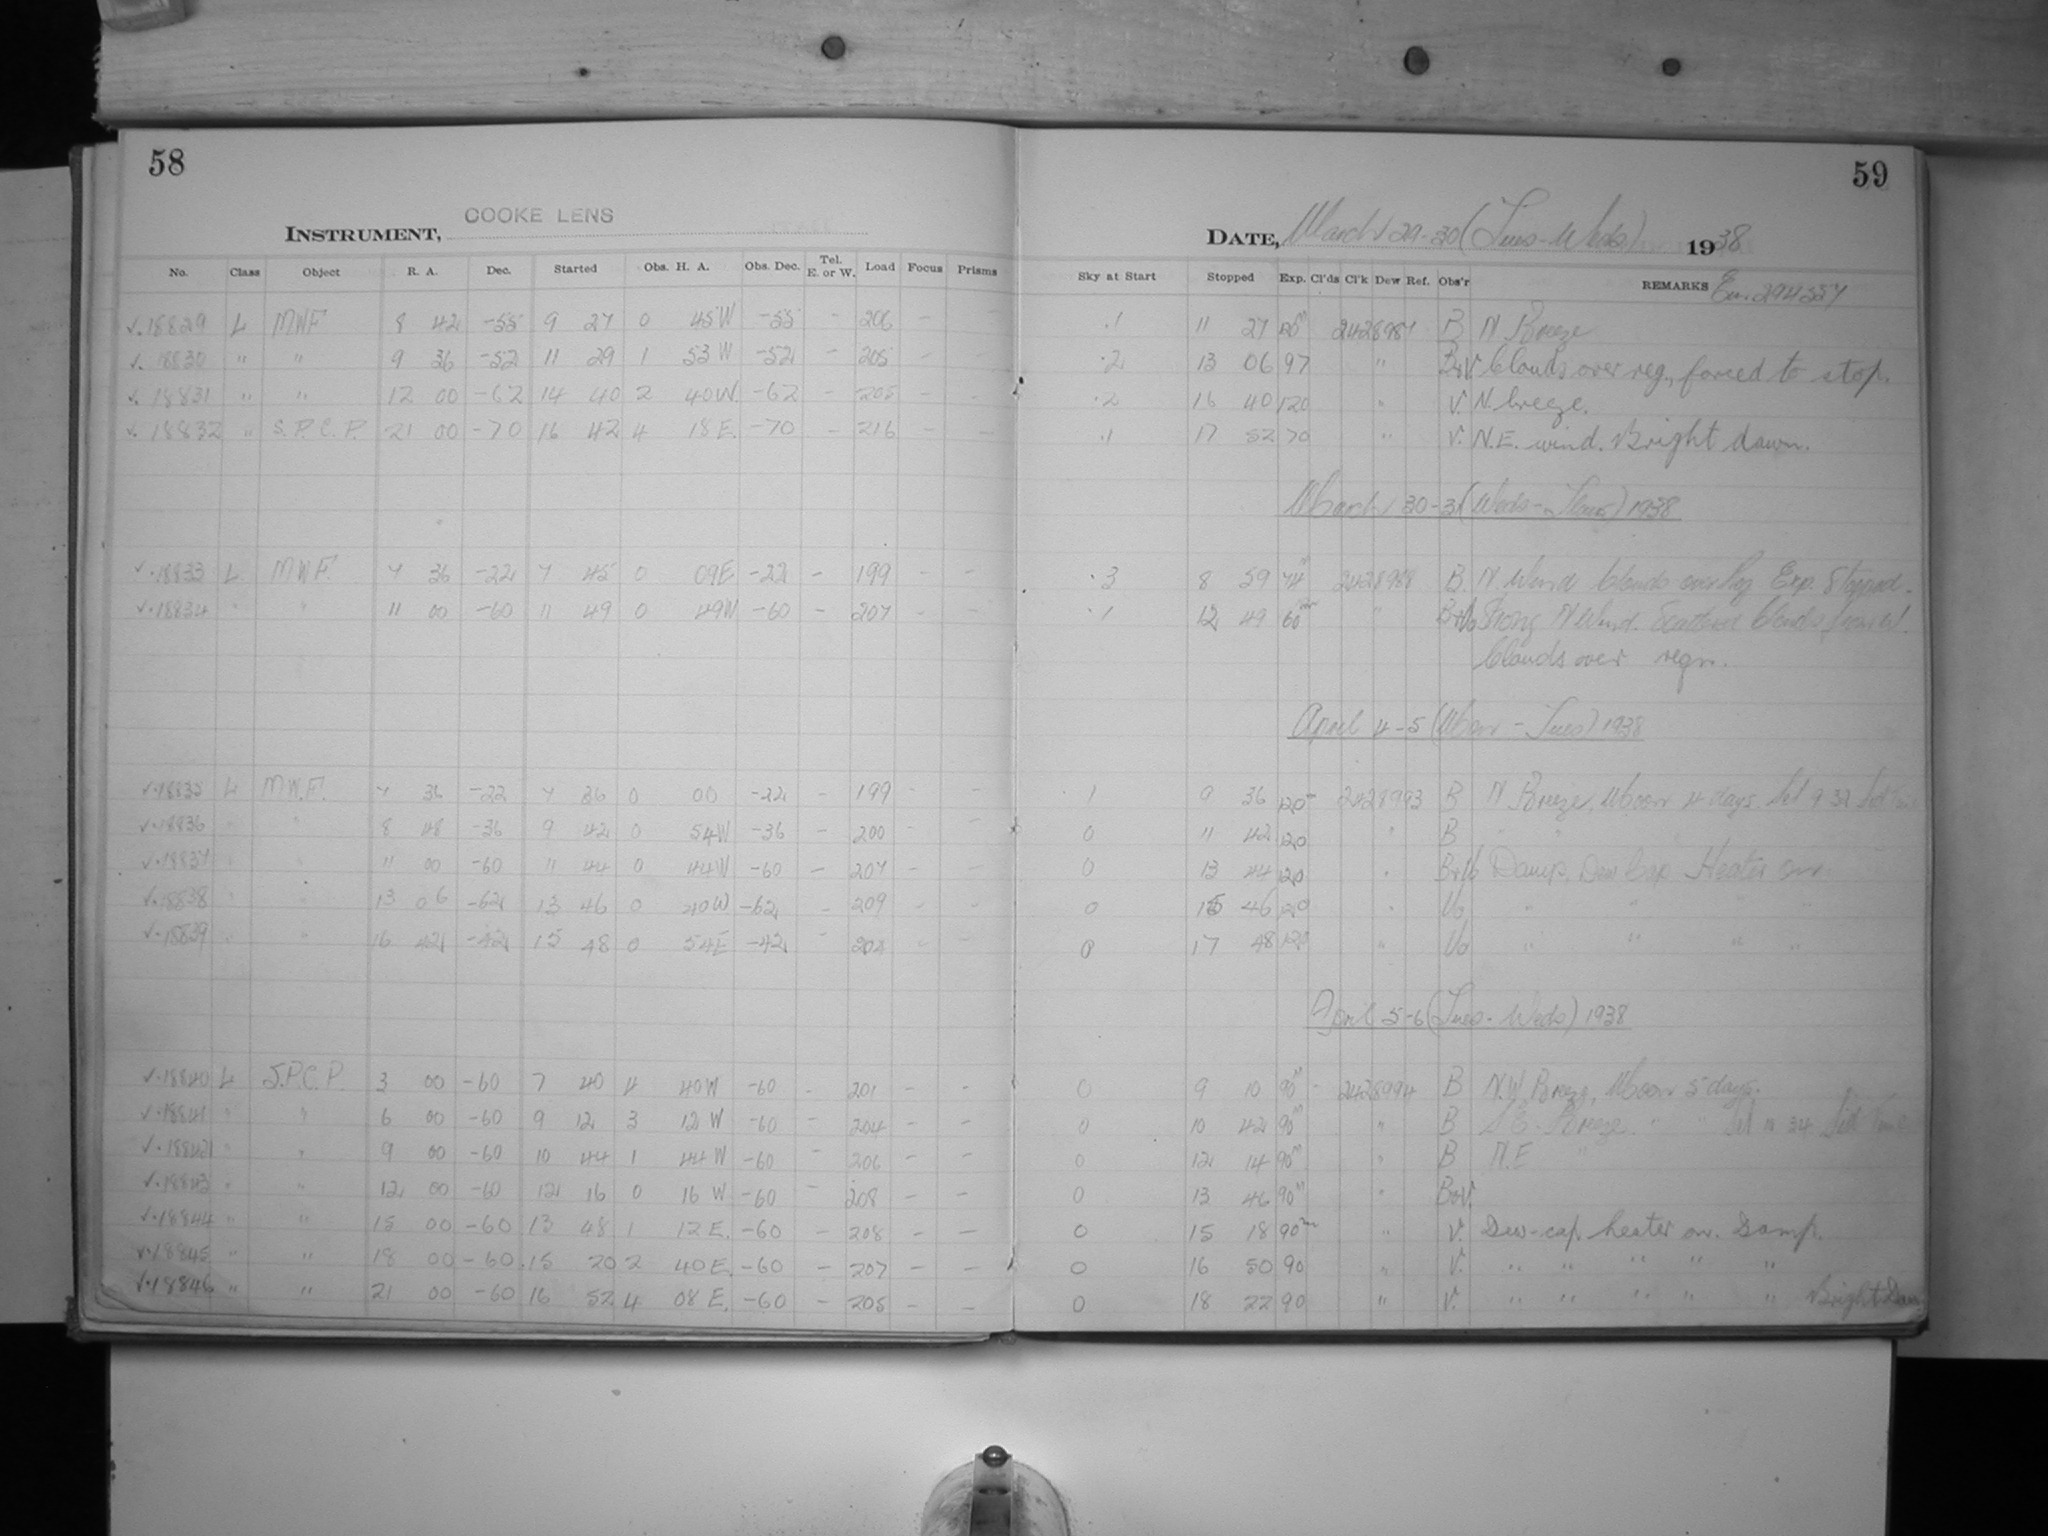 58
59
INSTRUMENT, COOKE LENS
DATE, March 29-30 (Tues-Weds) 1938
No. Class Object R. A. Dec. Started Obs. H. A. Obs. Dec. Tel. E. or W. Load Focus Prisms Sky at Start Stopped Exp. Cl'ds Cl'k Dew Ref. Obs'r REMARKS
✓.18829 L MWF 8 42 -55 9 27 0 45W -55 - 206 - - .1 11 27 120m 2428987 B N Breeze
✓. 18830 " " 9 36 -52 11 29 1 53W -52 - 205 - - .2 13 06 97 " B+V Clouds over reg, forced to stop.
✓. 18831 " " 12 00 -62 14 40 2 40W -62 - 205 - - .2 16 40 120 " V. N. breeze.
✓. 18832 " S.P.C.P. 21 00 -70 16 42 4 18E. -70 - 216 - - .1 17 52 70 " V. N.E. wind. Bright dawn.
March 30-31 (Weds-Thurs) 1938
✓.18833 L MWF. 7 36 -22 7 45 0 09E -22 - 199 - - .3 8 59 74m 2428988 B. N Wind Clouds over Reg Exp. Stopped.
✓.18834 " " 11 00 -60 11 49 0 49W -60 - 207 - - .1 12 49 60m " B+Vo Strong N Wind. Scattered Clouds from W.
Clouds over regn.
April 4-5 (Mon-Tues) 1938
✓.18835 L M.W.F. 7 36 -22 7 36 0 00 -22 - 199 - - 1 9 36 120m 2428993 B N Breeze, Moon 4 days. Set 9 32 Sid Time
✓.18836 " " 8 48 -36 9 42 0 54W -36 - 200 - - 0 11 42 120 " B " "
✓.18837 " " 11 00 -60 11 44 0 44W -60 - 207 - - 0 13 44 120 " B+Vo Damp, Dew Cap Heater on.
✓.18838 " " 13 06 -62 13 46 0 40W -62 - 209 - - 0 15 46 120 " Vo " " " "
✓.18839 " " 16 42 -42 15 48 0 54E -42 - 202 - - 0 17 48 120 " Vo " " " "
April 5-6 (Tues-Weds) 1938
✓.18840 L S.P.C.P. 3 00 -60 7 40 4 40W -60 - 201 - - 0 9 10 90m - 2428994 B N.W. Breeze, Moon 5 days.
✓.18841 " " 6 00 -60 9 12 3 12W -60 - 204 - - 0 10 42 90m " B S.E. Breeze. " " Set 10 34 Sid Time
✓.18842 " " 9 00 -60 10 44 1 44W -60 - 206 - - 0 12 14 90m " B N.E "
✓.18843 " " 12 00 -60 12 16 0 16W -60 - 208 - - 0 13 46 90m " B+V.
✓.18844 " " 15 00 -60 13 48 1 12E. -60 - 208 - - 0 15 18 90m " V. Dew-cap heater on. Damp.
✓.18845 " " 18 00 -60 15 20 2 40E. -60 - 207 - - 0 16 50 90 " V. " " " " "
✓.18846 " " 21 00 -60 16 52 4 08E. -60 - 205 - - 0 18 22 90 " V. " " " " " Bright Dawn